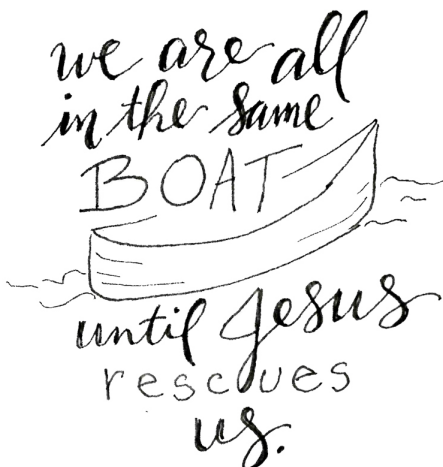 we are all
in the same
BOAT
until Jesus
rescues
us.